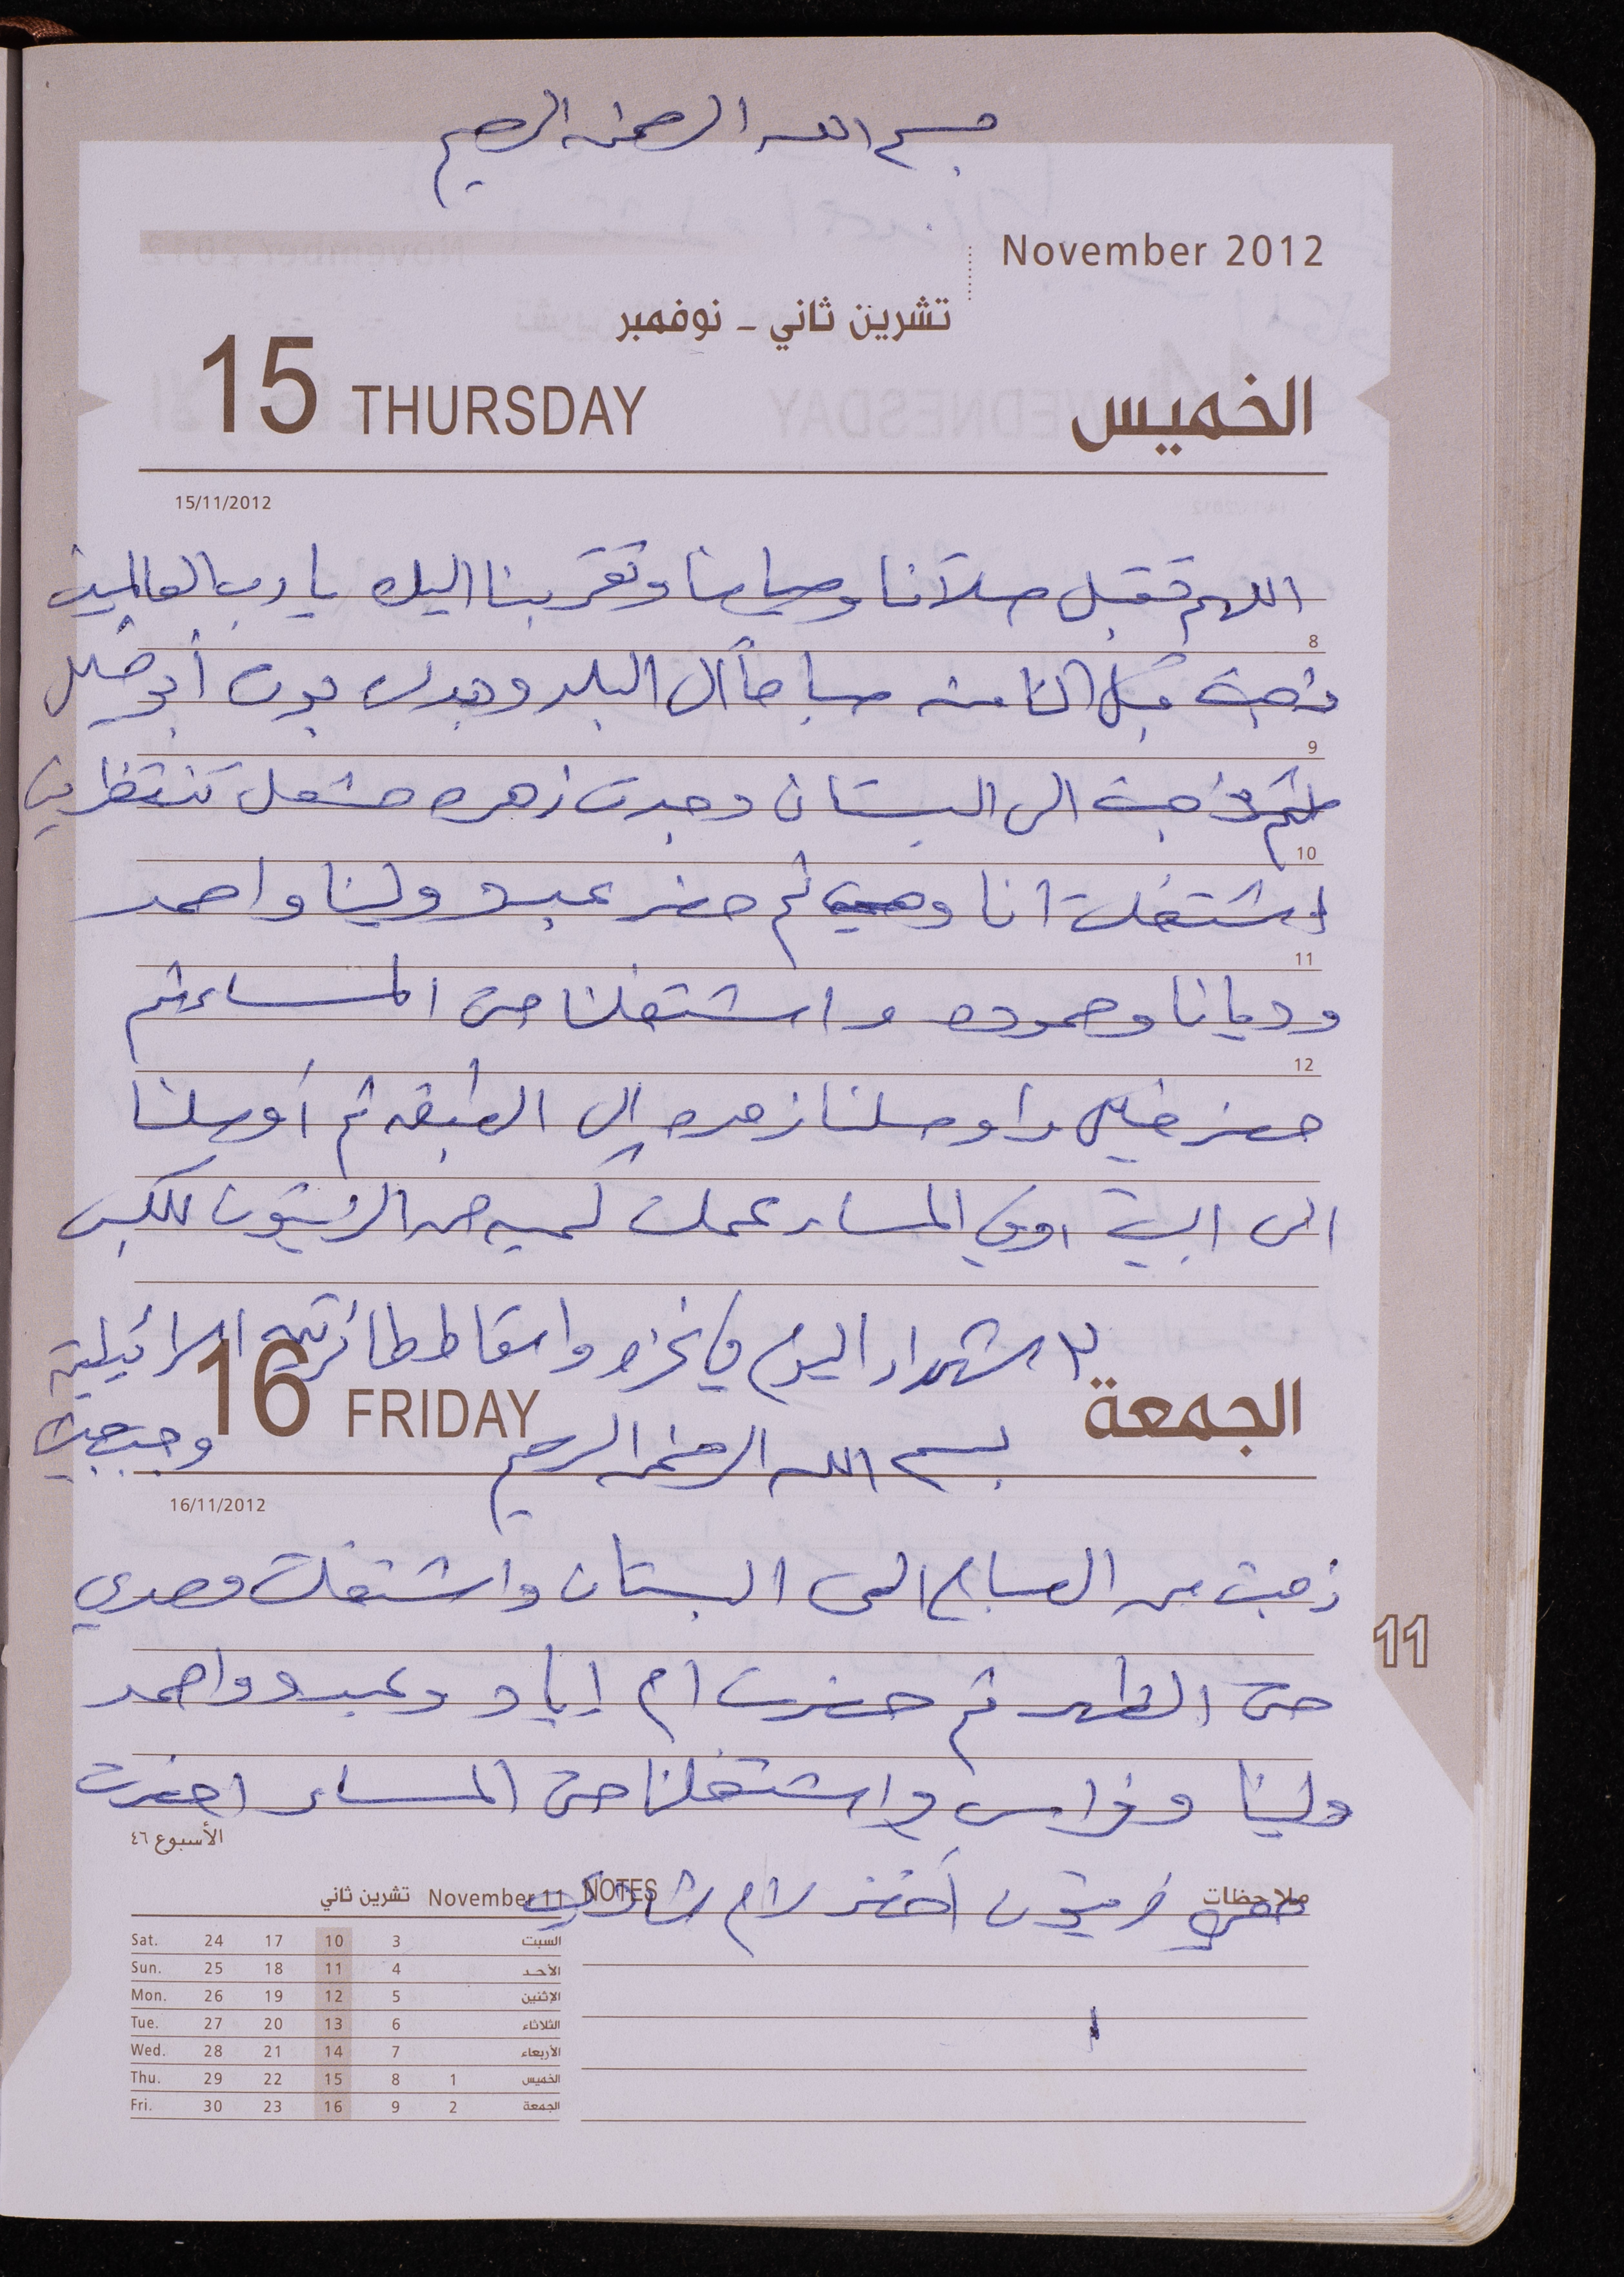 بسم الله الرحمن الرحيم
November 2012
تشرين ثاني - نوفمبر
15 THURSDAY الخميس
15/11/2012
اللهم تقبل صلاتنا وصيامنا وتقربنا اليك يا رب العالمين
8
ذهبت قبل الثامنه صباحاً الى البلد وجدت بدون أبو خليل
9
ثم ذهبت الى البستان وجدت زهره مشعل تنتظرني
10
اشتغلت انا وهي ثم حضر عبد ولينا واحمد
11
وديانا وحموده واشتغلنا حتى المساء ثم
12
حضر خليل واوصلنا زهره الى الطبقه ثم أوصلنا
الى البيت وفي المساء عملت كميه من الزيتون للكبس
٣ شهداء اليوم في غزه واسقاط طائرتين اسرائيلية
16 FRIDAY الجمعة
بسم الله الرحمن الرحيم
16/11/2012
ذهبت من الصباح الى البستان واشتغلت وحدي
حتى الظهر ثم حضرت ام اياد وعبد واحمد
ولينا وفراس واشتغلنا حتى المساء احضرت
الأسبوع ٤٦
زيتون أخضر لام شادي
ملاحظات NOTES
November 11 تشرين ثاني
Sat. 24 17 10 3 السبت
Sun. 25 18 11 4 الأحد
Mon. 26 19 12 5 الإثنين
Tue. 27 20 13 6 الثلاثاء
Wed. 28 21 14 7 الأربعاء
Thu. 29 22 15 8 1 الخميس
Fri. 30 23 16 9 2 الجمعة
11